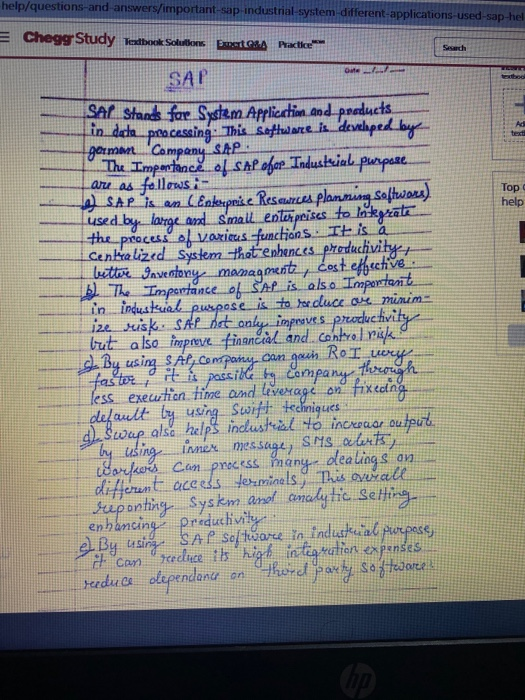 help/questions-and-answers/important-sap-industrial-system-different-applications-used-sap-hel
Chegg Study Textbook Solutions Expert Q&A Practice
Search
SAP
Date
SAP Stands for System Application and products
in data processing. This software is developed by
german Company SAP.
The Importance of SAP ofor Industrial purpose
are as follows:-
a) SAP is an (Enterprise Resources planning software)
used by large and small enterprises to Integrate
the process of various functions. It is a
centralized system that enhances productivity,
better Inventory managment, cost effective.
b) The Importance of SAP is also Important
in industrial purpose is to reduce are minim-
ize risk. SAP not only improves productivity
but also improve financial and control risk
c) By using SAP, company can gain RoI very
faster, it is possible by Company through
less execution time and leverage on fixeding
default by using swift techniques
d) Swap also helps industrial to increase output
by using inner message, SMS alerts,
Workers can process many dealings on
different access terminals, This overall
reporting system and analytic setting
enhancing productivity
e) By using SAP software in industrial purpose,
it can reduce its high integration expenses
reduce dependance on third party softwares
Top
help
hp